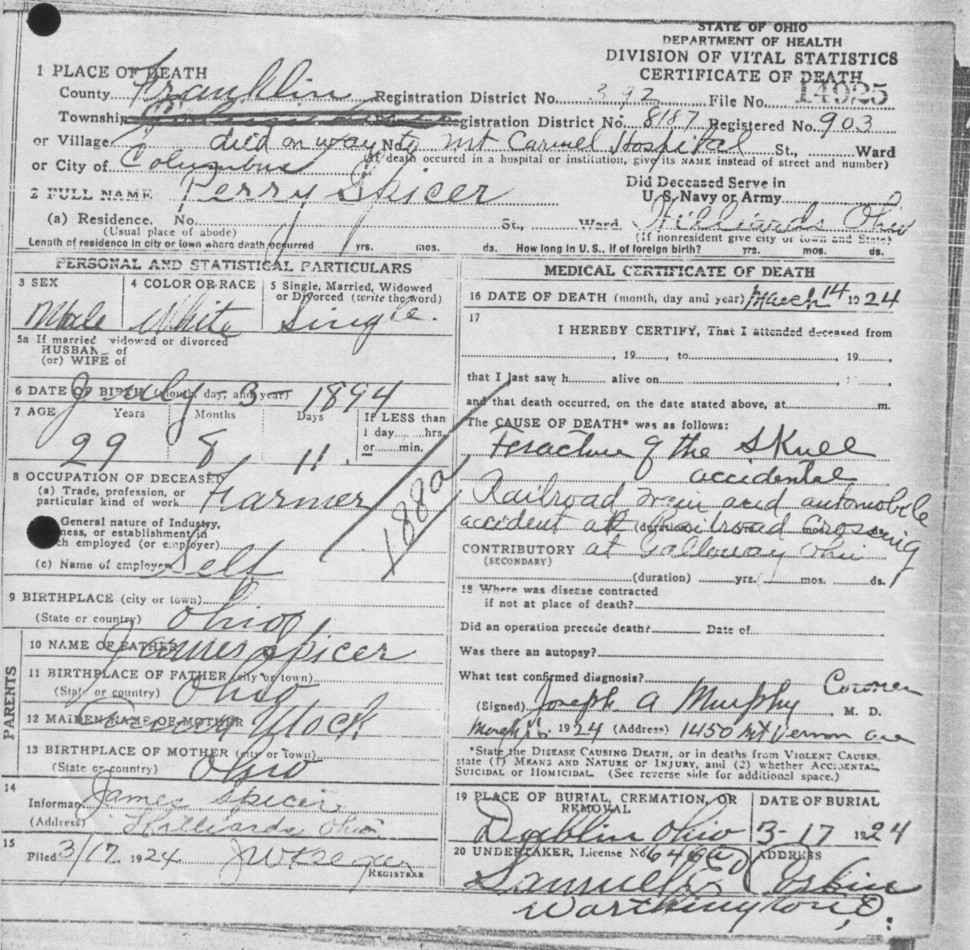 STATE OF OHIO
DEPARTMENT OF HEALTH
DIVISION OF VITAL STATISTICS
CERTIFICATE OF DEATH
1 PLACE OF DEATH
County Franklin Registration District No. 392 File No. 14925
Township Registration District No. 8187 Registered No. 903
or Village died on way No to Mt Carmel Hospital St., Ward
or City of Columbus (If death occured in a hospital or institution, give its NAME instead of street and number)
2 FULL NAME Perry Spicer
Did Deceased Serve in
U. S. Navy or Army
(a) Residence. No. St., Ward Hilliards Ohio
(Usual place of abode) (If nonresident give city or town and State)
Length of residence in city or town where death occurred yrs. mos. ds. How long in U. S., if of foreign birth? yrs. mos. ds.
PERSONAL AND STATISTICAL PARTICULARS
3 SEX 4 COLOR OR RACE 5 Single, Married, Widowed
or Divorced (write the word)
Male White Single.
5a If married widowed or divorced
HUSBAND of
(or) WIFE of
6 DATE OF BIRTH (month, day, and year) July 3 1894
7 AGE Years Months Days If LESS than
1 day hrs.
or min.
29 8 11.
8 OCCUPATION OF DECEASED
(a) Trade, profession, or
particular kind of work Farmer
General nature of Industry,
ness, or establishment in
ch employed (or employer)
(c) Name of employer Self
188a
9 BIRTHPLACE (city or town)
(State or country) Ohio
PARENTS
10 NAME OF FATHER James Spicer
11 BIRTHPLACE OF FATHER (city or town)
(State or country) Ohio
12 MAIDEN NAME OF MOTHER Mock
13 BIRTHPLACE OF MOTHER (city or town)
(State or country) Ohio
14
Informant James Spicer
(Address) Hilliards Ohio
15
Filed 3/17. 1924
REGISTRAR
MEDICAL CERTIFICATE OF DEATH
16 DATE OF DEATH (month, day and year) March 14 1924
17
I HEREBY CERTIFY, That I attended deceased from
, 19 , to , 19 ,
that I last saw h alive on , 1 ,
and that death occurred, on the date stated above, at m.
The CAUSE OF DEATH* was as follows:
Feracture of the Skull
accidental
Railroad train and automobile
accident at Railroad Crossing
(duration)
CONTRIBUTORY at Galloway Ohio
(SECONDARY)
(duration) yrs. mos. ds.
18 Where was disease contracted
if not at place of death?
Did an operation precede death? Date of
Was there an autopsy?
What test confirmed diagnosis?
(Signed) Joseph A Murphy Coroner M. D.
March 16 1924 (Address) 1450 Mt Vernon ave
*State the DISEASE CAUSING DEATH, or in deaths from VIOLENT CAUSES,
state (1) MEANS AND NATURE OF INJURY, and (2) whether ACCIDENTAL
SUICIDAL or HOMICIDAL. (See reverse side for additional space.)
19 PLACE OF BURIAL, CREMATION, OR
REMOVAL
DATE OF BURIAL
Dublin Ohio 3-17 1924
20 UNDERTAKER, License No. ADDRESS
Worthington, O